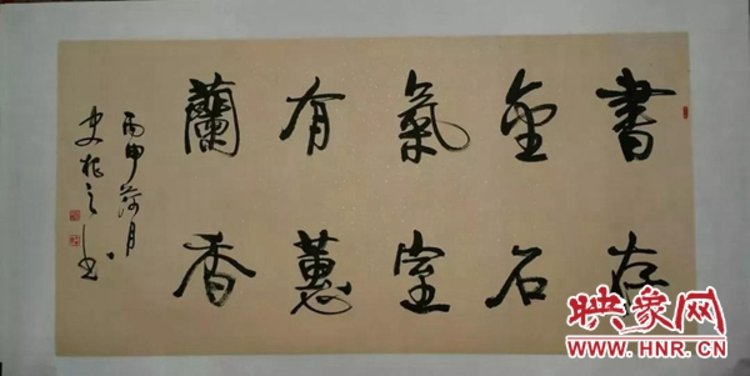 書存
金石
氣室
有蕙
蘭香
丙申荷月
史
书
映象网
WWW.HNR.CN